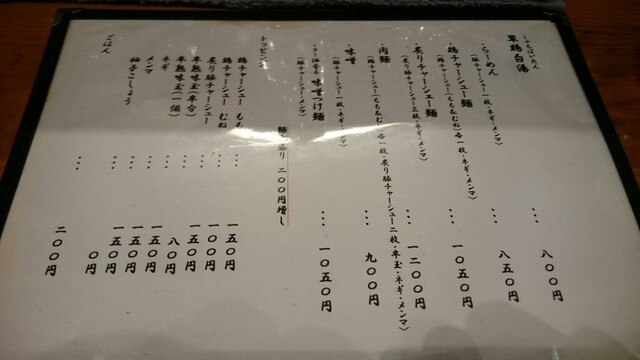 しゃもぱいたん
軍鶏白湯
・らーめん … 八〇〇円
(鶏チャーシュー一枚・ネギ・メンマ)
・鶏チャーシュー麺 … 八五〇円
(鶏チャーシュー(もも&むね)各一枚・ネギ・メンマ)
・炙りチャーシュー麺 … 一〇五〇円
(炙り豚チャーシュー三枚・ネギ・メンマ)
・肉麺 … 一二〇〇円
(鶏チャーシュー(もも&むね)各一枚・炙り豚チャーシュー二枚・半玉・ネギ・メンマ)
・味噌 … 九〇〇円
(鶏チャーシュー一枚・ネギ・メンマ)
・ラー油香る 味噌つけ麺 … 一〇五〇円
(鶏チャーシュー・メンマ)
麺大盛り 二〇〇円増し
トッピング
鶏チャーシュー もも … 一五〇円
鶏チャーシュー むね … 一〇〇円
炙り豚チャーシュー … 一五〇円
半熟味玉(半分) … 八〇円
半熟味玉(一個) … 一五〇円
ネギ … 一五〇円
メンマ … 一五〇円
柚子こしょう … 〇円
ごはん … 二〇〇円